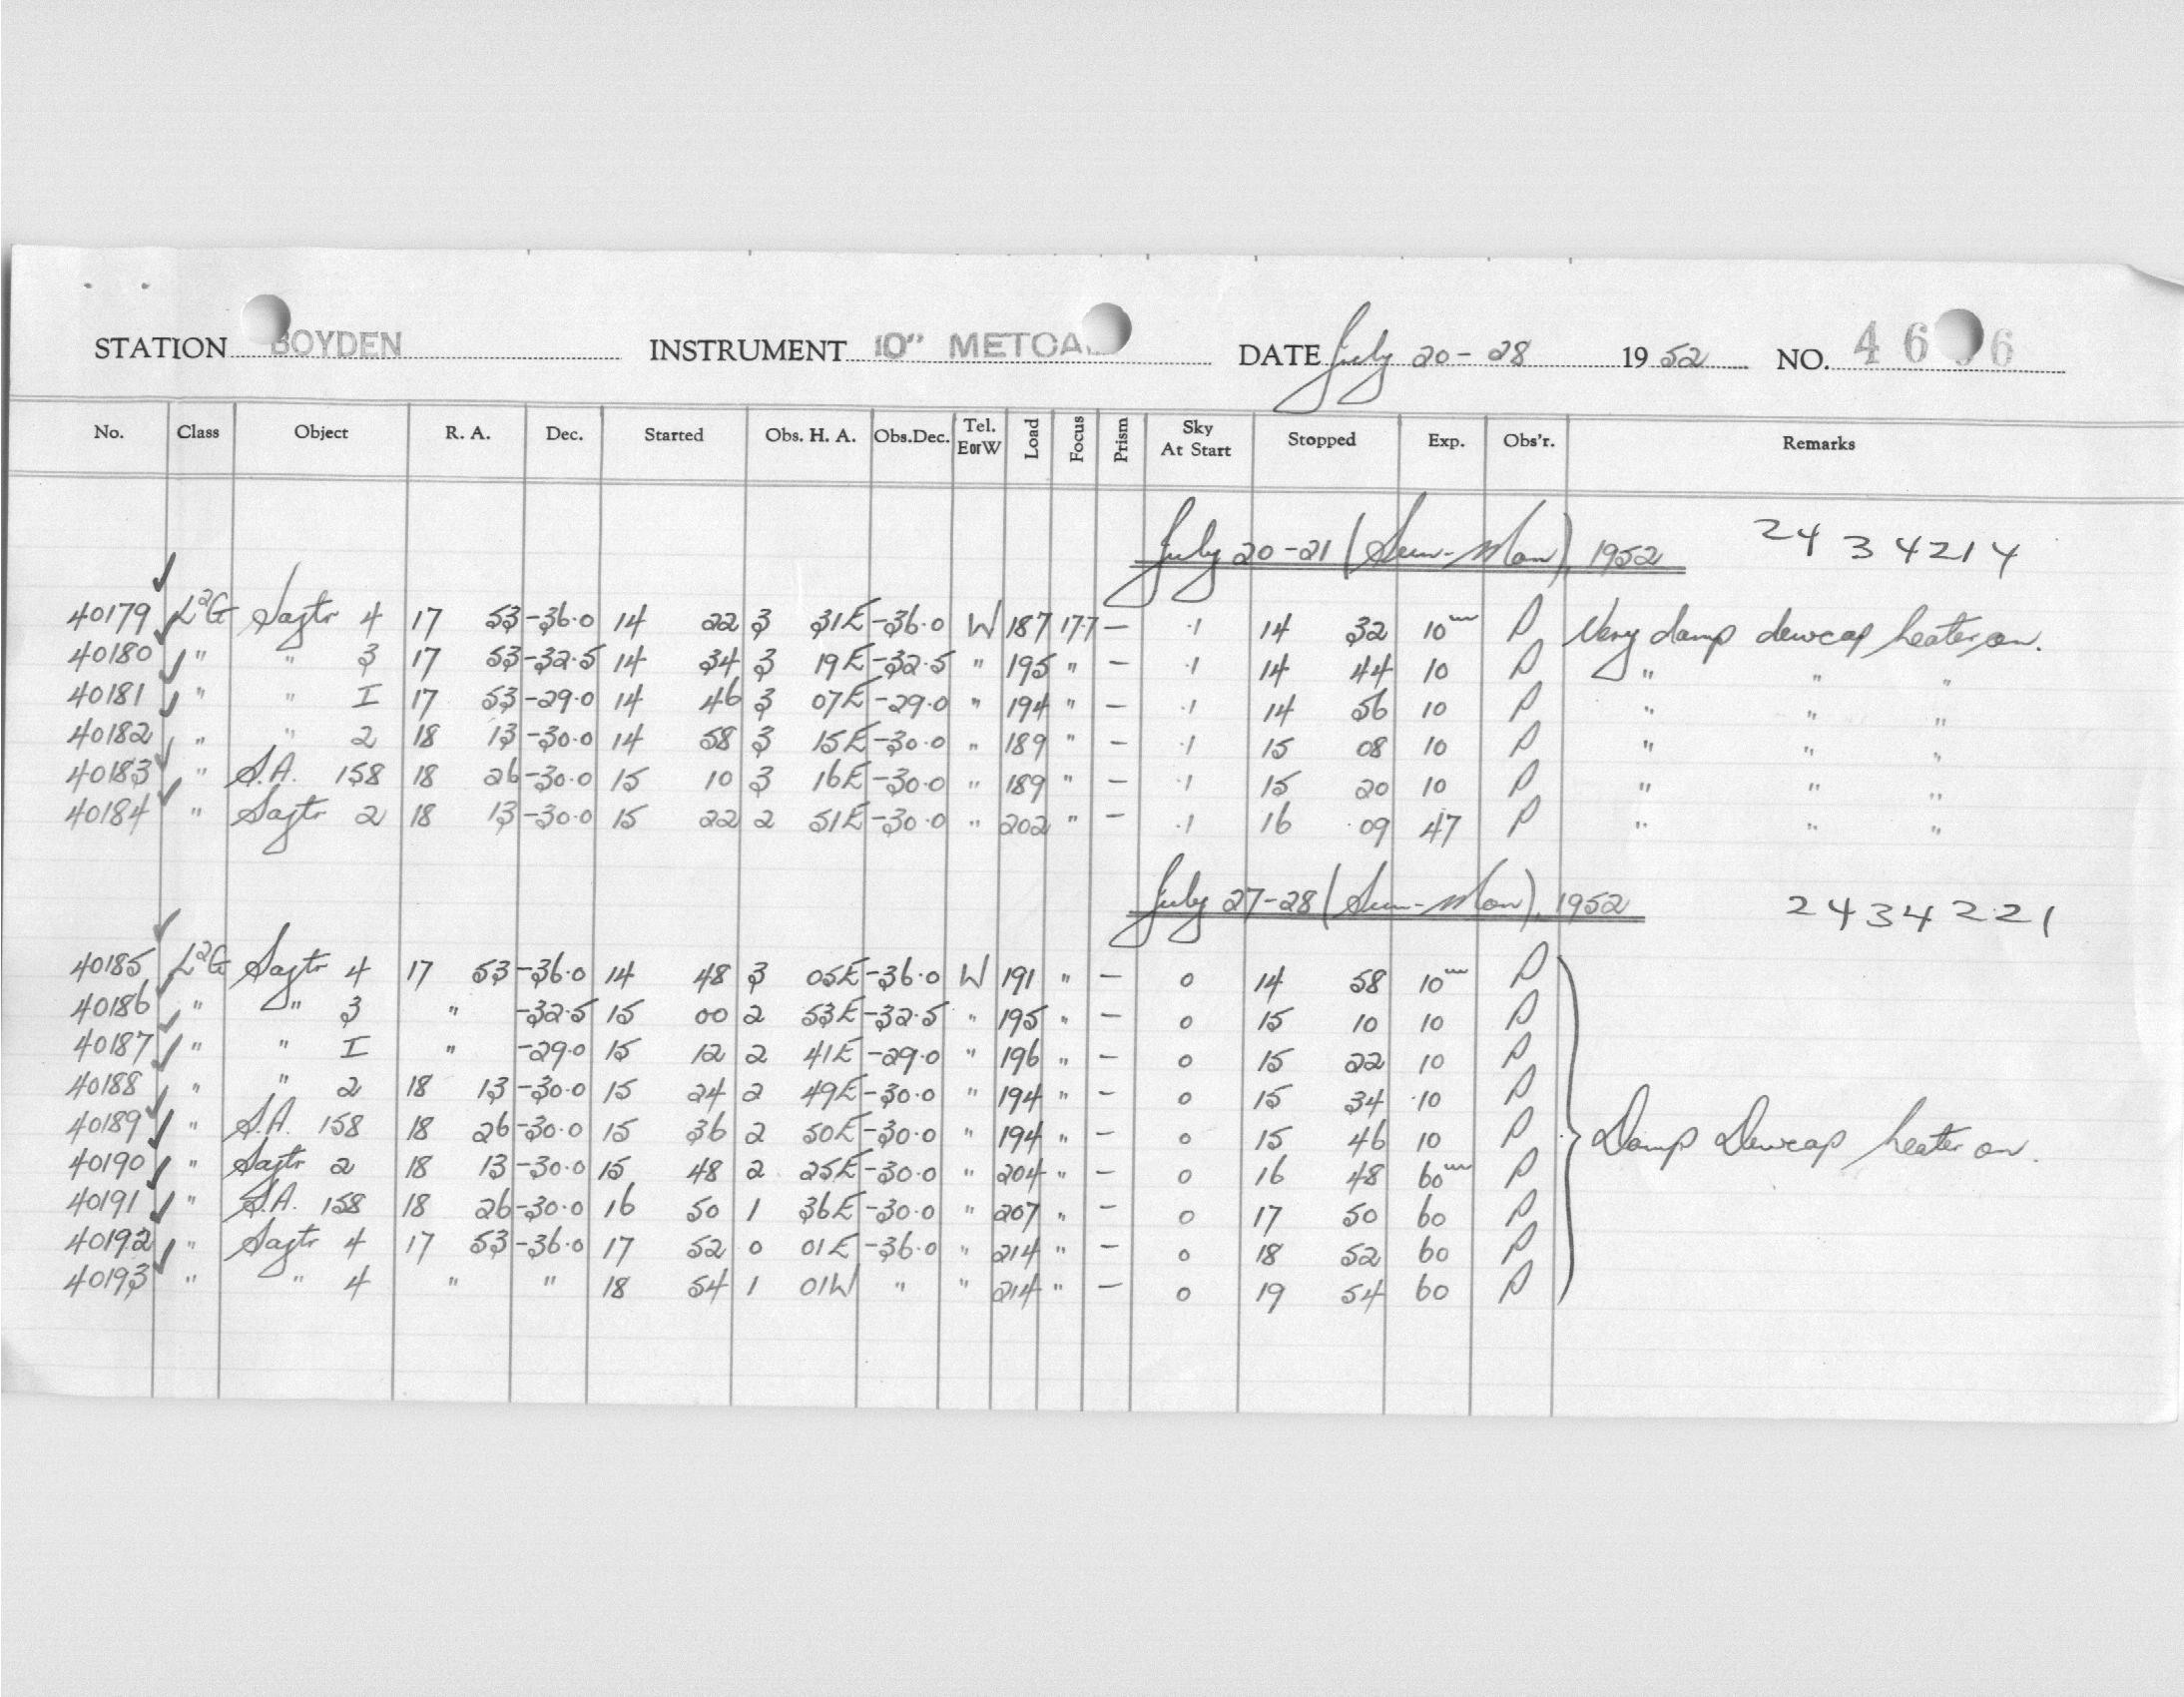 STATION BOYDEN INSTRUMENT 10" METCA DATE July 20-28 1952 NO. 46 6
No. Class Object R. A. Dec. Started Obs. H. A. Obs.Dec. Tel. EorW Load Focus Prism Sky At Start Stopped Exp. Obs'r. Remarks
July 20-21 (Sun-Mon), 1952 2434214
40179 L²G Sagtr 4 17 53 -36.0 14 22 3 31E -36.0 W 187 17.7 — .1 14 32 10ᵐ P Very damp dewcap heater on.
40180 " " 3 17 53 -32.5 14 34 3 19E -32.5 " 195 " — .1 14 44 10 P " " "
40181 " " I 17 53 -29.0 14 46 3 07E -29.0 " 194 " — .1 14 56 10 P " " "
40182 " " 2 18 13 -30.0 14 58 3 15E -30.0 " 189 " — .1 15 08 10 P " " "
40183 " S.A. 158 18 26 -30.0 15 10 3 16E -30.0 " 189 " — .1 15 20 10 P " " "
40184 " Sagtr 2 18 13 -30.0 15 22 2 51E -30.0 " 202 " — .1 16 09 47 P " " "
July 27-28 (Sun-Mon), 1952 2434221
40185 L²G Sagtr 4 17 53 -36.0 14 48 3 05E -36.0 W 191 " — 0 14 58 10ᵐ P
40186 " " 3 " -32.5 15 00 2 53E -32.5 " 195 " — 0 15 10 10 P
40187 " " I " -29.0 15 12 2 41E -29.0 " 196 " — 0 15 22 10 P
40188 " " 2 18 13 -30.0 15 24 2 49E -30.0 " 194 " — 0 15 34 10 P
40189 " S.A. 158 18 26 -30.0 15 36 2 50E -30.0 " 194 " — 0 15 46 10 P Damp Dewcap heater on.
40190 " Sagtr 2 18 13 -30.0 15 48 2 25E -30.0 " 204 " — 0 16 48 60ᵐ P
40191 " S.A. 158 18 26 -30.0 16 50 1 36E -30.0 " 207 " — 0 17 50 60 P
40192 " Sagtr 4 17 53 -36.0 17 52 0 01E -36.0 " 214 " — 0 18 52 60 P
40193 " " 4 " " 18 54 1 01W " " 214 " — 0 19 54 60 P